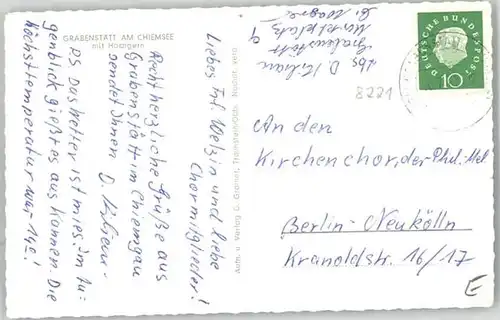 GRABENSTÄTT AM CHIEMSEE
mit Hochgern
Liebes Frl. Welzin und liebe
Chormitglieder!
Recht herzliche Grüße aus
Grabenstätt im Chiemgau
sendet Ihnen D. Kilian
PS Das Wetter ist mies, im Au-
genblick gießt es aus Kannen. Die
Höchsttemperatur war 14°!
Aufn. u. Verlag G. Traunstein/Obb.
Abs. D. Kilian
Grabenstätt
8221
DEUTSCHE BUNDESPOST
10
An den
Kirchenchor, der Phil.-Mel
Berlin-Neukölln
Kranoldstr. 16/17
E